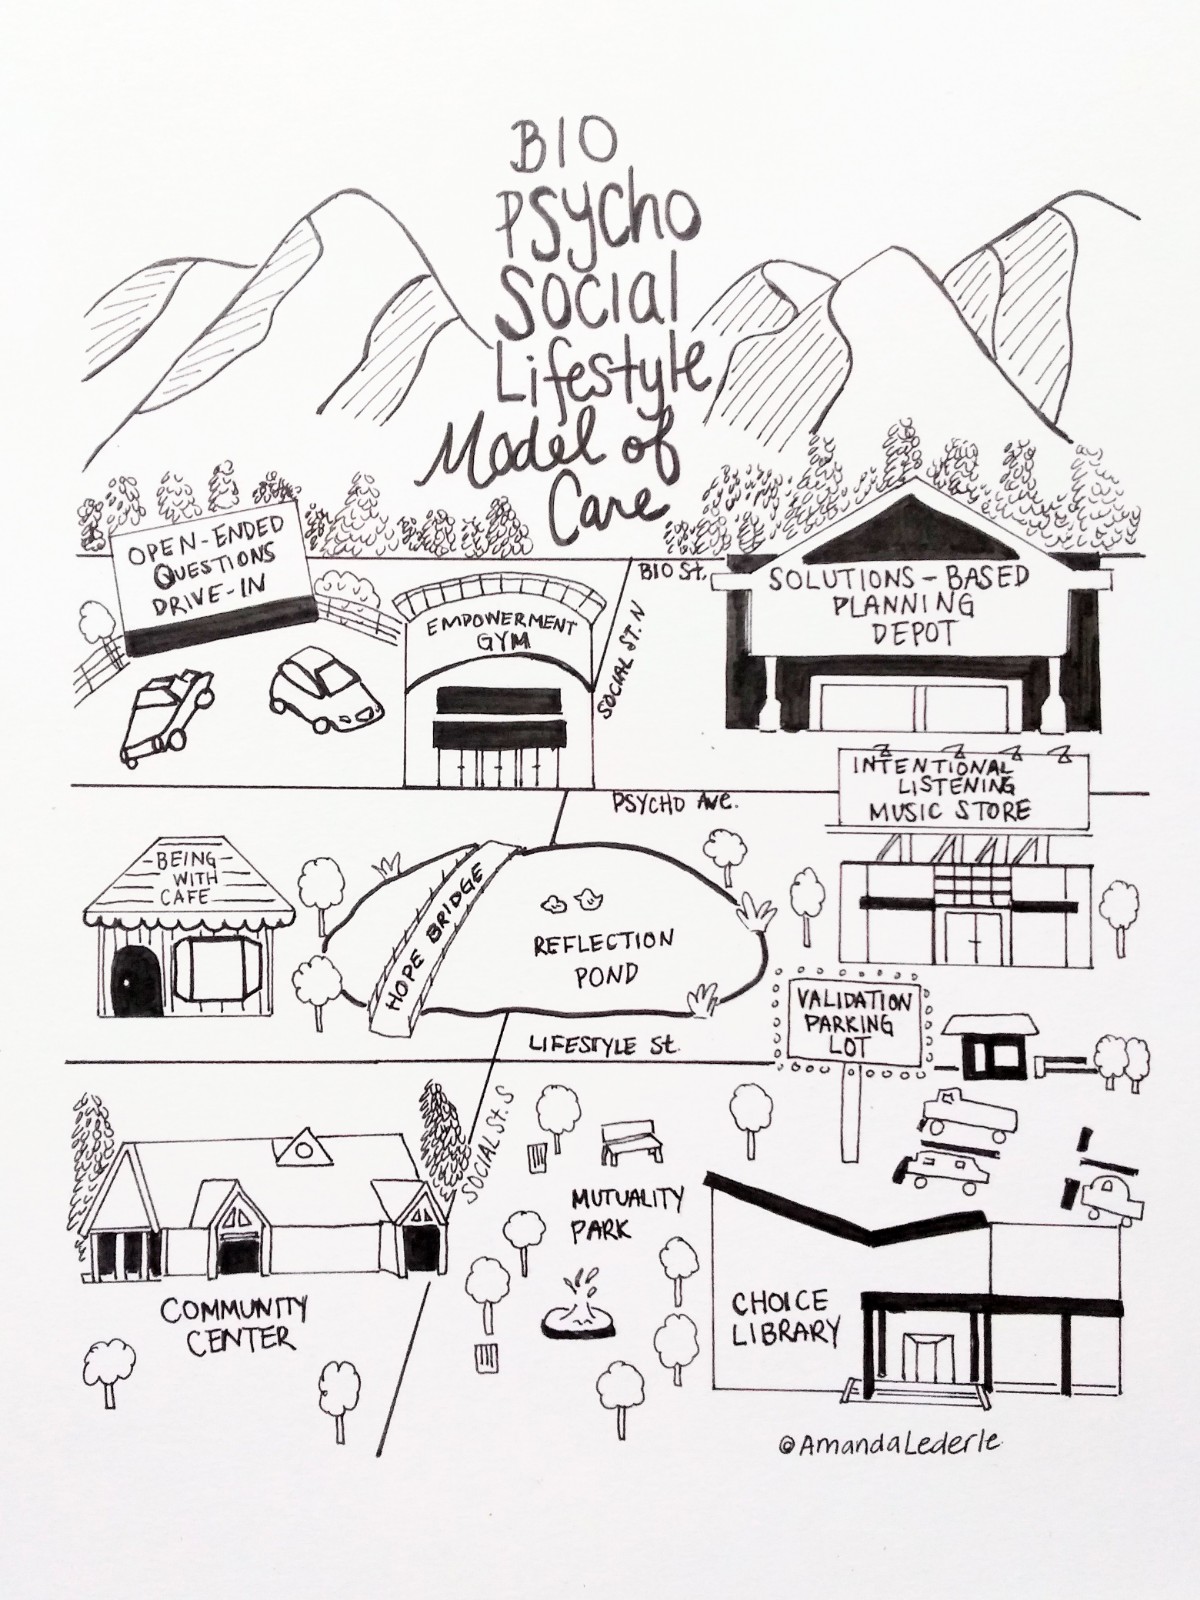 BIO
Psycho
Social
Lifestyle
Model of
Care
OPEN-ENDED
QUESTIONS
DRIVE-IN
EMPOWERMENT
GYM
BIO St.
SOCIAL ST. N
SOLUTIONS-BASED
PLANNING
DEPOT
INTENTIONAL
LISTENING
MUSIC STORE
PSYCHO Ave.
-BEING-
WITH
CAFE
HOPE BRIDGE
REFLECTION
POND
VALIDATION
PARKING
LOT
LIFESTYLE St.
SOCIAL St. S
MUTUALITY
PARK
COMMUNITY
CENTER
CHOICE
LIBRARY
©AmandaLederle